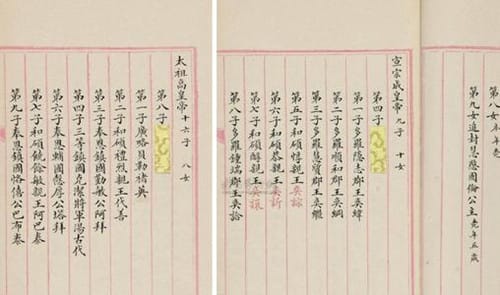 太祖高皇帝 十六子 八女
第八子
第一子廣略貝勒褚英
第二子和碩禮烈親王代善
第三子奉恩鎮國勤敏公阿拜
第四子三等鎮國克潔將軍湯古代
第六子奉恩輔國慤厚公塔拜
第七子和碩饒餘敏親王阿巴泰
第九子奉恩鎮國恪僖公巴布泰
第八女
第九女追封慧愍固倫公主 年五歲
宣宗成皇帝 九子 十女
第四子
第一子多羅隱志郡王奕緯
第二子多羅順和郡王奕綱
第三子多羅慧質郡王奕繼
第五子和碩惇親王奕誴
第六子和碩恭親王奕訢
第七子和碩醇親王奕譞
第八子多羅鍾端郡王奕詥